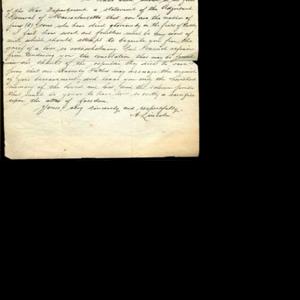 of the War Department a statement of the Adjutant
General of Massachusetts that you are the mother of
sons who have died gloriously on the field of battle
I feel how weak and fruitless must be any word of
mine which should attempt to beguile you from the
grief of a loss so overwhelming. But I cannot refrain
from tendering you the consolation that may be found
in the thanks of the republic they died to save
I pray that our Heavenly Father may assuage the anguish
of your bereavement, and leave you only the cherished
memory of the loved and lost, and the solemn pride
that must be yours to have laid so costly a sacrifice
upon the altar of freedom
Yours very sincerely and respectfully,
A. Lincoln